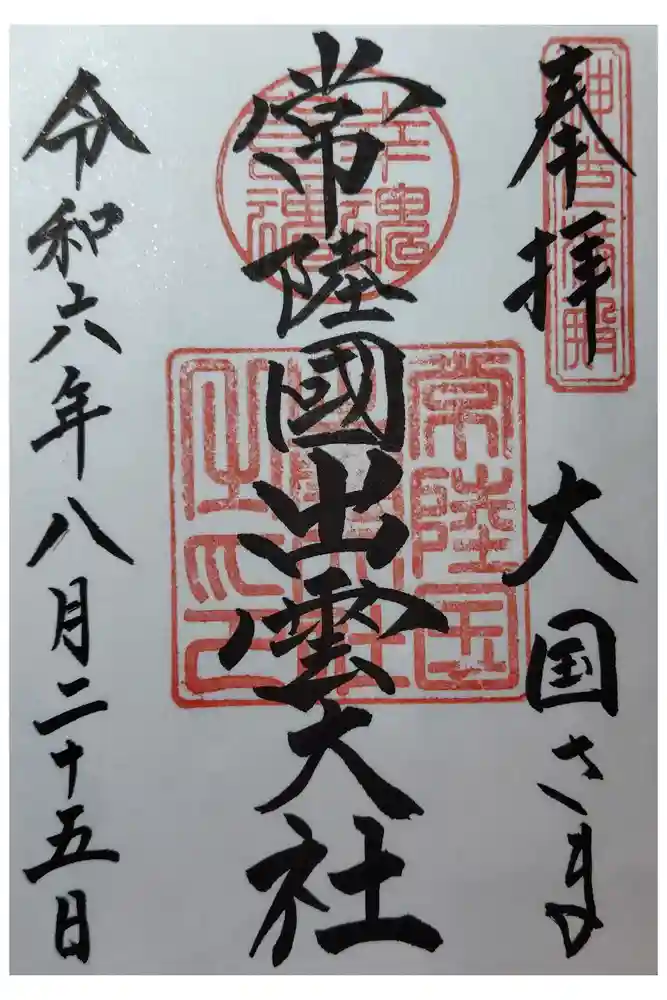 奉拝
大国さま
常陸國出雲大社
令和六年八月二十五日
常陸国
之印